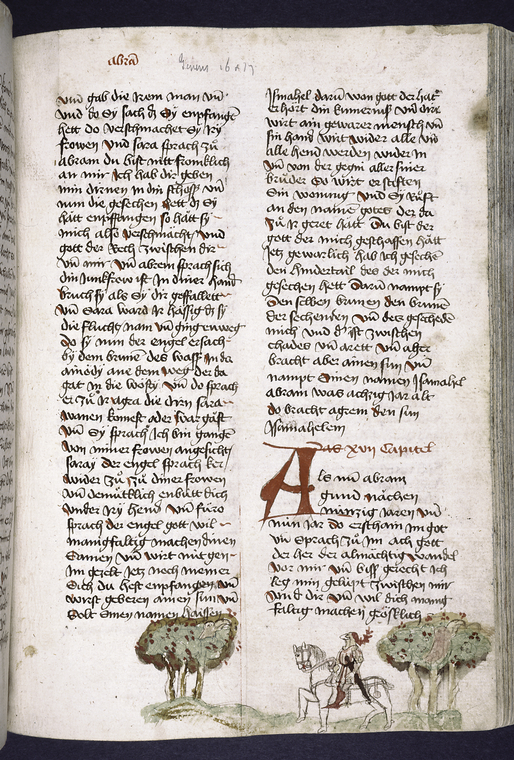 abrā
vnd gab die Irem man vn̄
vnd do Sy sach dz Sy empfangē
hett do verschmachet Sy Iry
frowen vnd sara sprach zů
abram du bist nitt fromklich
an mir Ich hab dir geben
min dirnen in din schoss vnd
nun die gesechen hett dz Sy
hatt enpffangen so hatt sy
mich also verschmacht vnd
gott der Rech zwischen dir
vn̄ mir vn̄ abrem sprach sich
din Junkfrow ist in diner hand
bruch sy als Sy dir geffallett
vn̄ Sara ward Ir hässig dz sy
die flucht nam vn̄ ging enweg
do sy nun der engel ersach
by dem brunē des wass in da
ainödy ane dem weg der da
gat in die wosty vn̄ do sprach
er zů Ir agra die dirn sara
wanen komest oder war gast
vn̄ Sy sprach Ich bin gangē
von miner frowen angesicht
saray der engel sprach ker
wider zů diner frowen
vn̄ demüttlich enbütt dich
vnder Iry hend vn̄ füro
sprach der engel gott wil
manigfaltig machen dinen
Samen vn̄ wirt nüt gen
im gezelt Jetz noch niemer
Sich du hest enpfangen vn̄
wirst geberen ainen sun vn̄
Solt Sinen namen haissen
Ismahel darū won gott der hat
erhört din kumernus vn̄ dire
wirt ain gewarer mensch vn̄
sin hand wirt wider alle vn̄
alle hend werden wider in
vn̄ von der gegni aller siner
brüder So wirt er stiften
Sin wonung vnd Sy Rüfft
an den namē gotes der da
zů Ir geret hatt Du bist der
gott der mich geschaffen hatt
Jetz gewarlich hab ich gesechē
den hindertail des der mich
gesechen hett Darū nampt sy
Den selben brunen den brunē
der sechenden vn̄ des gesechedē
mich vnd dz ist zwischen
chades vn̄ arett vn̄ aher
bracht aber ainen sun vn̄
nampt Sinen namen Ismahel
abram was achzig jar alt
do bracht agrem den sun
Ismahelem
Das xvii Capitel
Als nū abram
gund nächen
nünzig jaren vn̄
nün Jar do erschain im got
vn̄ sprach zů im ach gott
der her der almächtig wandel
vor mir vn̄ biss gerecht Ich
leg min gelüpt zwischen mir
vnd dir vn̄ wil dich manig
faltig machen gröslich